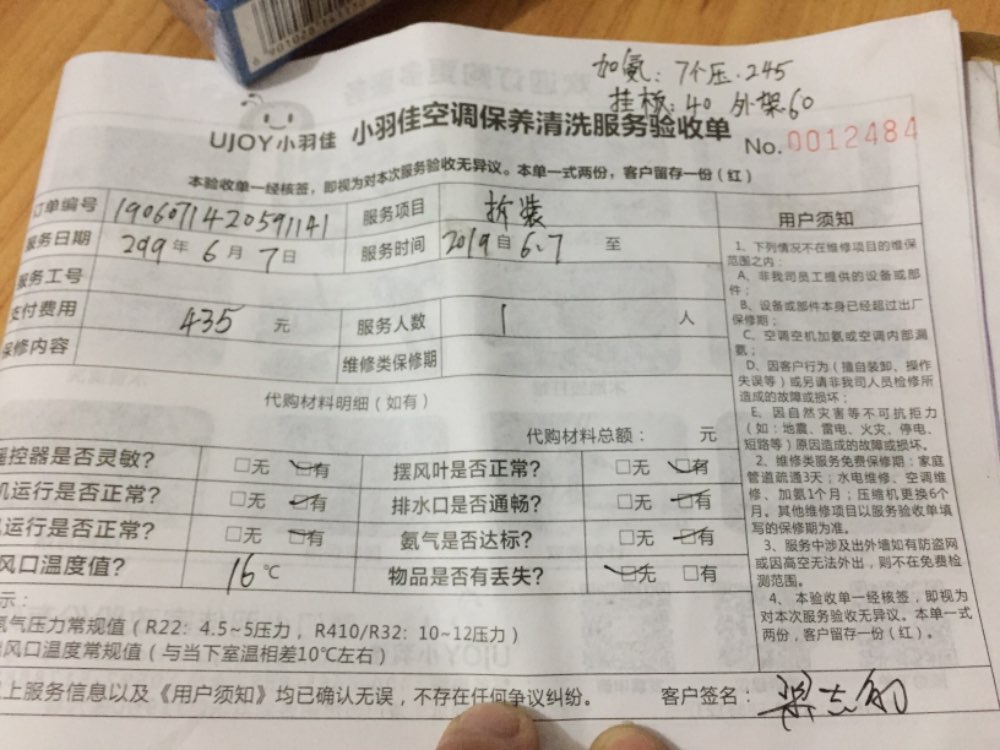 加氨：7个压.245
挂板：40 外架60
UJOY小羽佳 小羽佳空调保养清洗服务验收单
No.0012484
本验收单一经核签，即视为对本次服务验收无异议。本单一式两份，客户留存一份（红）
订单编号 1906071420591141 服务项目 拆装
服务日期 2019年6月7日 服务时间 2019自6.7 至
服务工号
支付费用 435 元 服务人数 1 人
保修内容 维修类保修期
代购材料明细（如有）
代购材料总额： 元
遥控器是否灵敏？ □无 □有 摆风叶是否正常？ □无 □有
机运行是否正常？ □无 □有 排水口是否通畅？ □无 □有
运行是否正常？ □无 □有 氨气是否达标？ □无 □有
风口温度值？ 16℃ 物品是否有丢失？ □无 □有
示：
氨气压力常规值（R22：4.5~5压力，R410/R32：10~12压力）
风口温度常规值（与当下室温相差10℃左右）
上服务信息以及《用户须知》均已确认无误，不存在任何争议纠纷。 客户签名：
用户须知
1、下列情况不在维修项目的维保
范围之内：
A、非我司员工提供的设备或部
件；
B、设备或部件本身已经超过出厂
保修期；
C、空调空机加氨或空调内部漏
氨；
D、因客户行为（擅自装卸、操作
失误等）或另请非我司人员检修所
造成的故障或损坏；
E、因自然灾害等不可抗拒力
（如：地震、雷电、火灾、停电、
短路等）原因造成的故障或损坏。
2、维修类服务免费保修期：家庭
管道疏通3天；水电维修、空调维
修、加氨1个月；压缩机更换6个
月。其他维修项目以服务验收单填
写的保修期为准。
3、服务中涉及出外墙如有防盗网
或因高空无法外出，则不在免费检
测范围。
4、本验收单一经核签，即视为
对本次服务验收无异议。本单一式
两份，客户留存一份（红）。